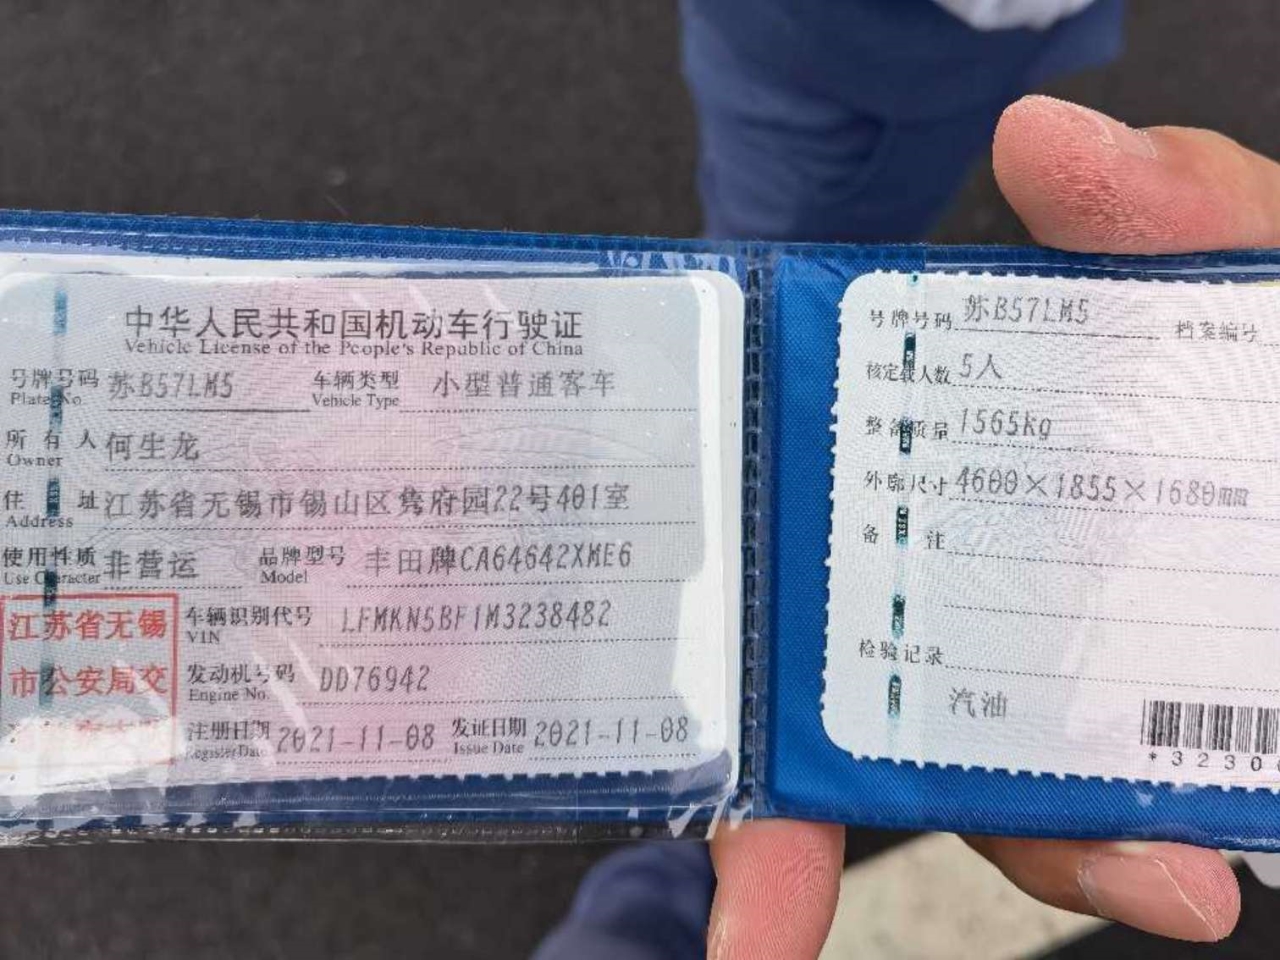 中华人民共和国机动车行驶证
Vehicle License of the People's Republic of China
号牌号码 苏B57LM5 车辆类型 小型普通客车
Plate No. Vehicle Type
所有人 何生龙
Owner
住址 江苏省无锡市锡山区隽府园22号401室
Address
使用性质 非营运 品牌型号 丰田牌CA64642XME6
Use Character Model
江苏省无锡
市公安局交
车辆识别代号 LFMKN5BF1M3238482
VIN
发动机号码 DD76942
Engine No.
注册日期 2021-11-08 发证日期 2021-11-08
Register Date Issue Date
号牌号码 苏B57LM5 档案编号
核定载人数 5人
整备质量 1565kg
外廓尺寸 4600×1855×1680mm
备注
检验记录
汽油
*3230